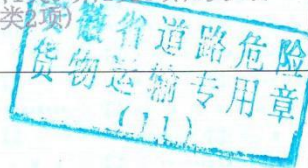 类2项)
徽省道路危险
货物运输专用章
(11)